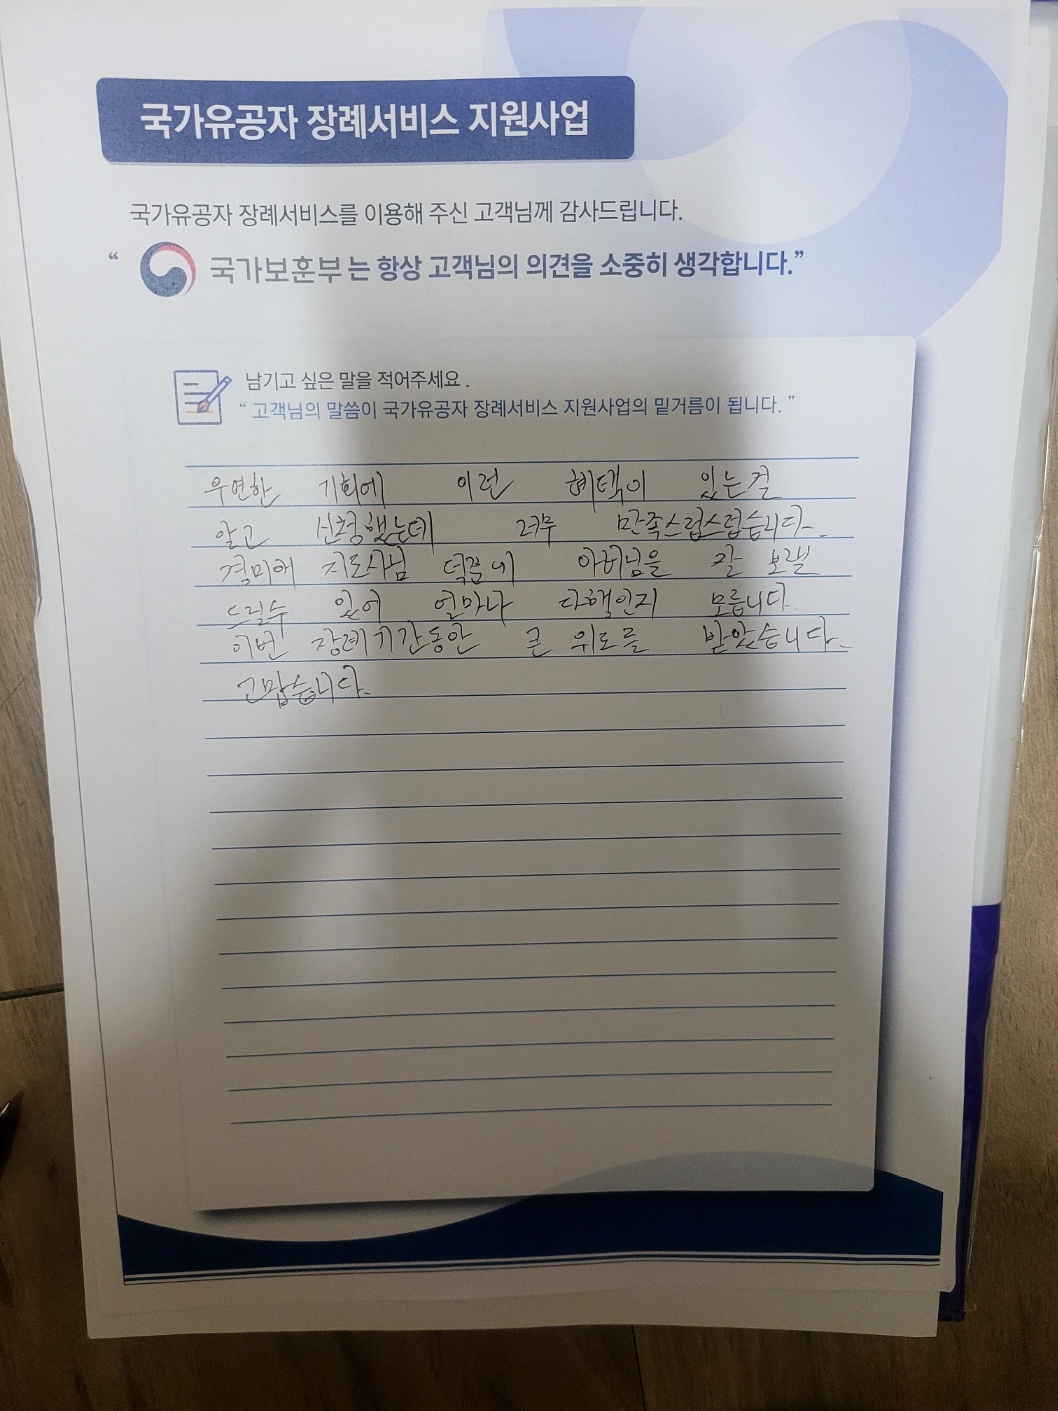 국가유공자 장례서비스 지원사업
국가유공자 장례서비스를 이용해 주신 고객님께 감사드립니다.
“ 국가보훈부는 항상 고객님의 의견을 소중히 생각합니다.”
남기고 싶은 말을 적어주세요.
“ 고객님의 말씀이 국가유공자 장례서비스 지원사업의 밑거름이 됩니다. ”
우연한 기회에 이런 혜택이 있는걸
알고 신청했는데 너무 만족스럽스럽습니다.
결미애 지도사님 덕분에 아버님을 잘 보낼
드릴수 있어 얼마나 다행인지 모릅니다.
이번 장례기간동안 큰 위로를 받았습니다.
고맙습니다.